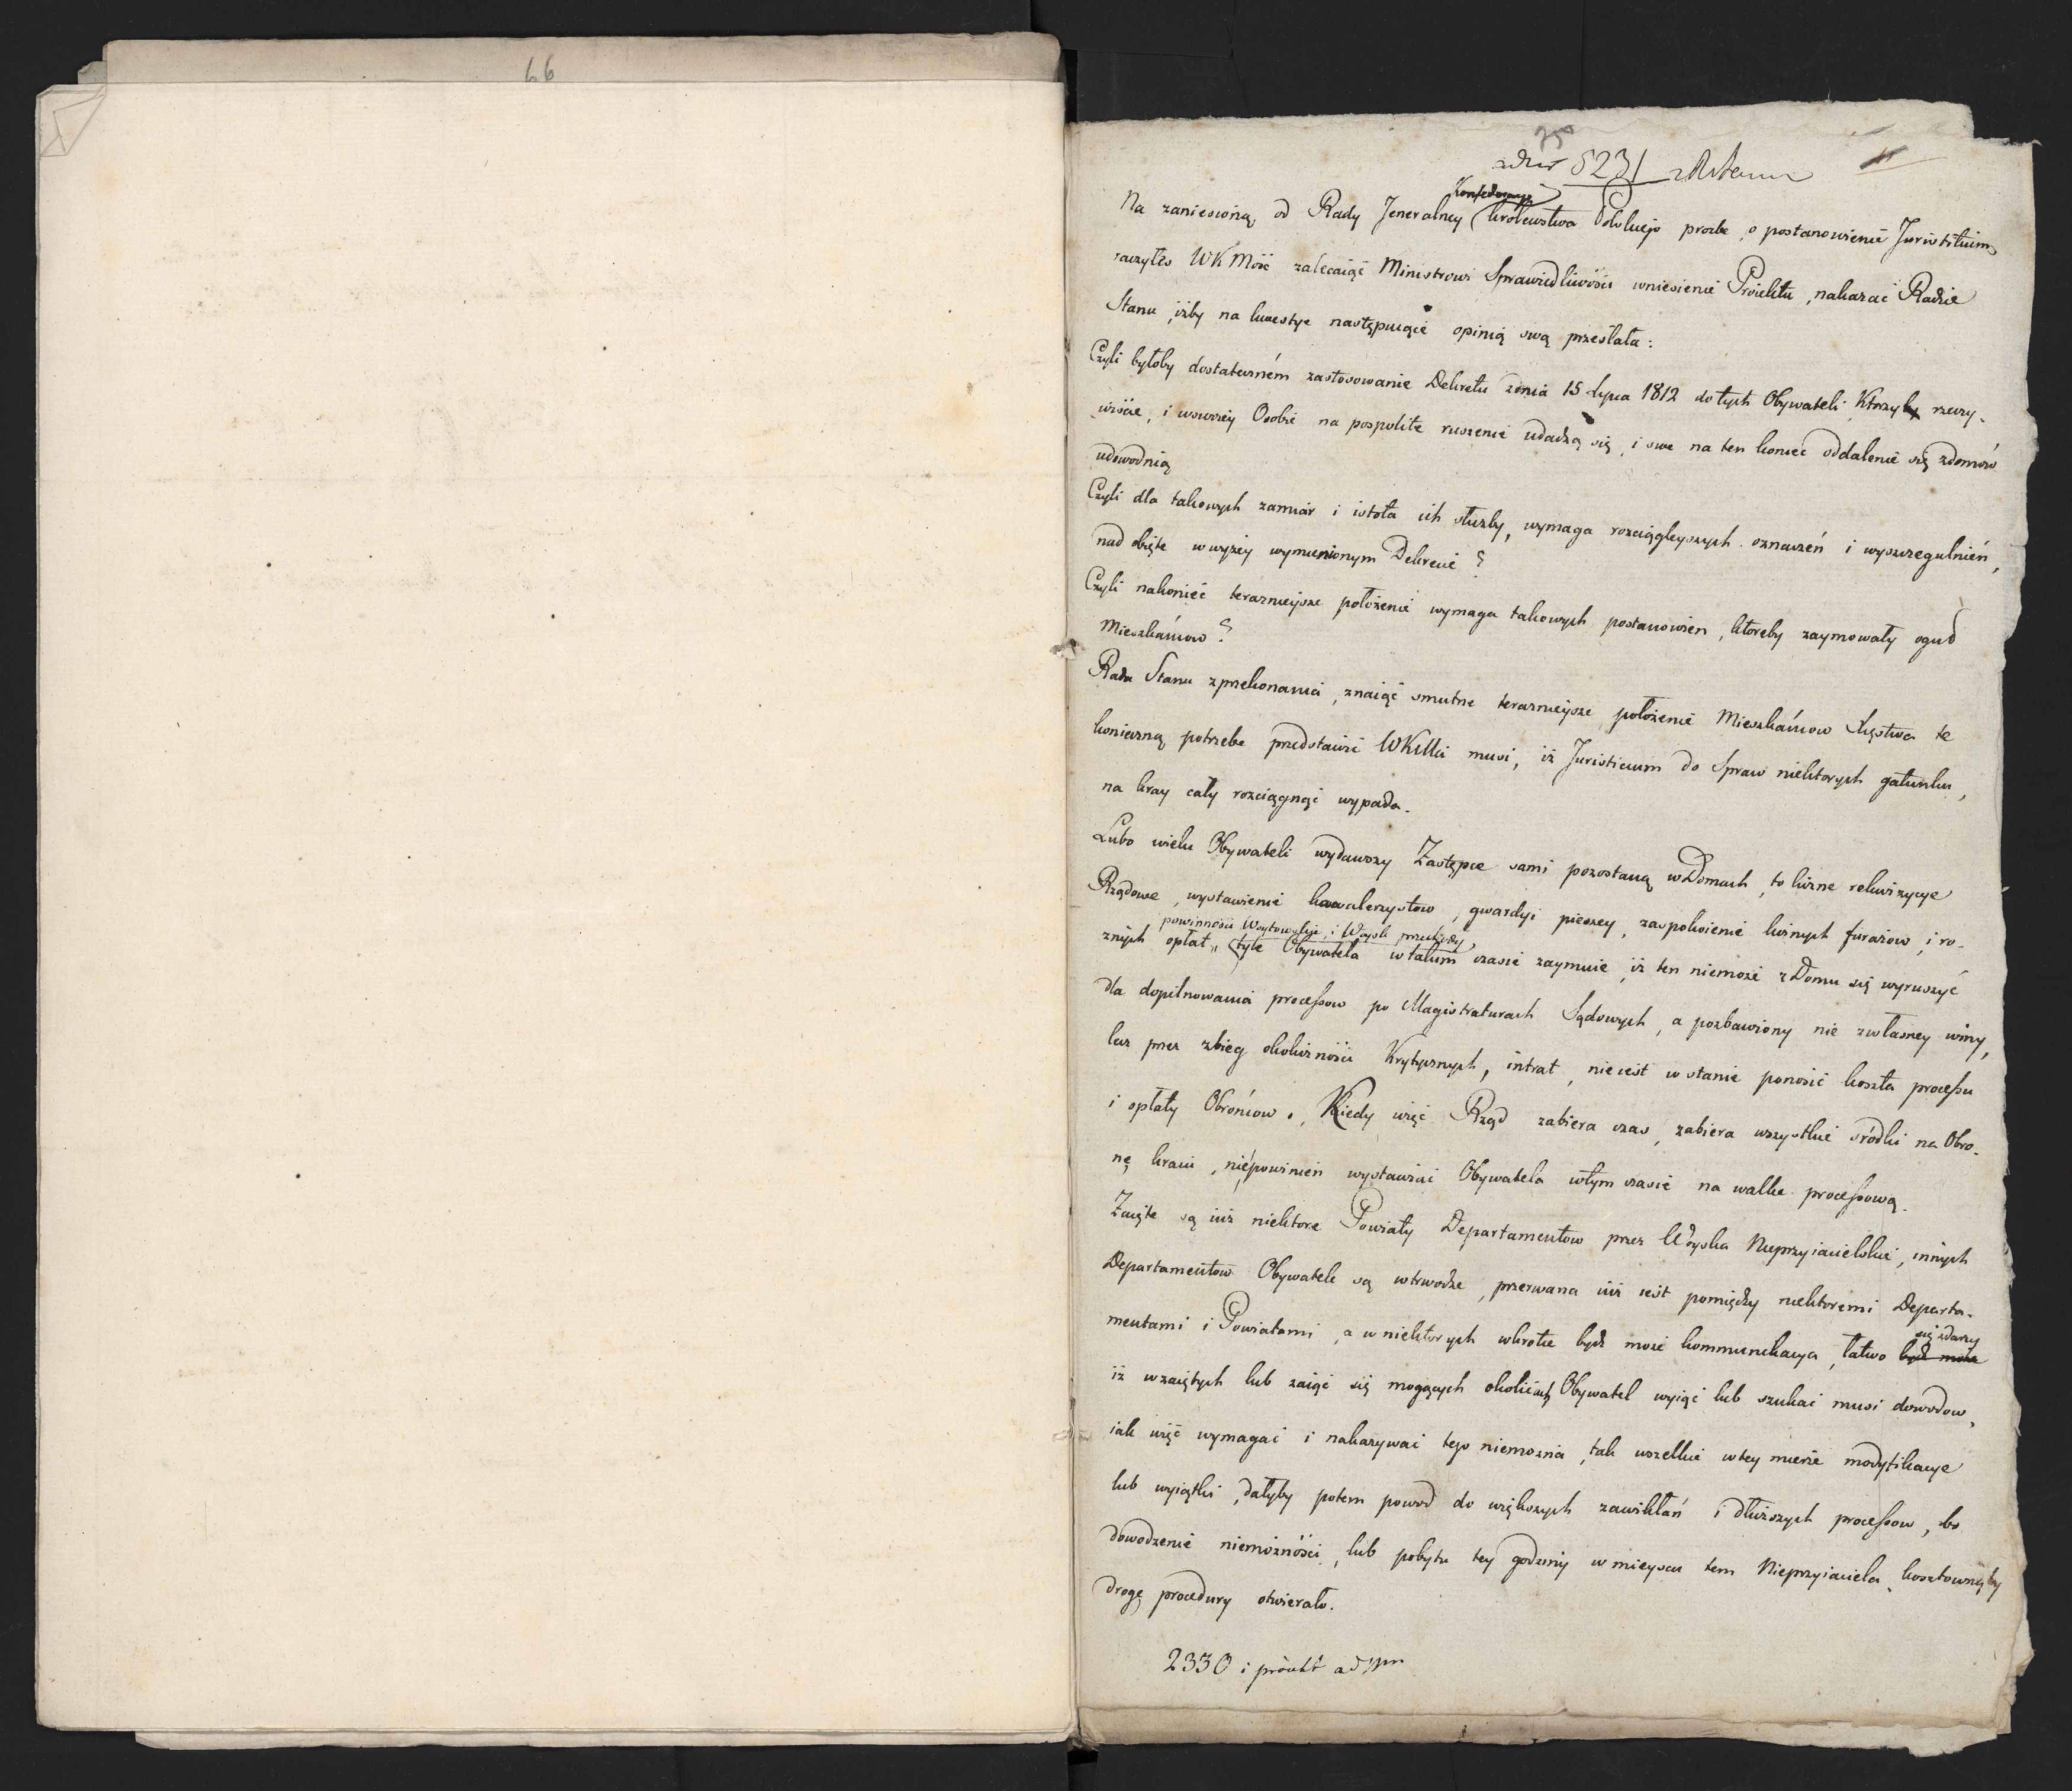 66
75
5231
11
Konfederacyi
Na zaniesioną od Rady Jeneralney Krolewstwa Polskiego prosbe, o postanowienie Juristitium
raczyłes WKMość zalecaiąć Ministrowi Sprawiedliwości wniesienie Proiektu, nakazać Radzie
Stanu, iżby na kwestye następuiące opinią swą przesłała:
Czyli byłoby dostatecznem zastosowanie Dekretu zdnia 15 Lipca 1812 do tych Obywateli Ktorzyby rzeczy-
wiście, i wswoiey Osobie na pospolite ruszenie udadzą się, i swe na ten koniec oddalenie się zdomow
udowodnią
Czyli dla takowych zamiar i istota ich służby, wymaga rozciągleyszych oznaczeń i wyszczegulnień,
nad obięte wwyżey wymienionym Dekrecie?
Czyli nakoniec terazneiysze położenie wymaga takowych postanowien, ktoreby zaymowały oguł
Mieszkańcow?
Rada Stanu zprzekonania, znaiąć smutne terazneiysze położenie Mieszkańcow Xięstwa te
konieczną potrzebe przedstawić WKMci musi, iż Juristicium do Spraw niektorych gatunku,
na kray cały rozciągnąć wypada.
Lubo wielu Obywateli wydawszy Zastępce sami pozostaną w Domach, to liczne rekwizycye
Rządowe, wystawienie kawalerzystow, gwardyi pieszey, zaspokoienie licznych furazow, i ro-
powinności Woytowskie i Woysk przechody
znych opłat, tyle Obywatela wtakim czasie zaymuie, iż ten niemoże z Domu się wyruszyć
dla dopilnowania processow po Magistraturach Sądowych, a pozbawiony nie zwłasney winy,
lecz przez zbieg okoliczności Krytycznych, intrat, nieiest w stanie ponosić koszta processu
i opłaty Obrońcow. Kiedy więc Rząd zabiera czas, zabiera wszystkie srodki na Obro-
nę kraiu, niepowinien wystawiać Obywatela wtym czasie na walke processową.
Zaięte są iuż niektore Powiaty Departamentow przez Woyska Nieprzyiacielskie, innych
Departamentow Obywatele są wtrwodze, przerwana iuż iest pomiędzy niektoremi Departa-
mentami i Powiatami, a w niektorych wkrotce bydz może kommunikacya, łatwo bydz może
się zdarzy
iż wzaiętych lub zaiąć się mogących okolicach Obywatel wyiąć lub szukać musi dowodow,
iak więc wymagać i nakazywać tego niemożna, tak wszelkie wtey mierze modyfikacye
lub wyiątki, dałyby potem powod do większych zawikłań i dłuższych processow, bo
dowodzenie niemożności, lub pobytu tey godziny w mieyscu tem Nieprzyiaciela, kosztownąby
drogę procedury otwierało.
2330 i proiekt ad